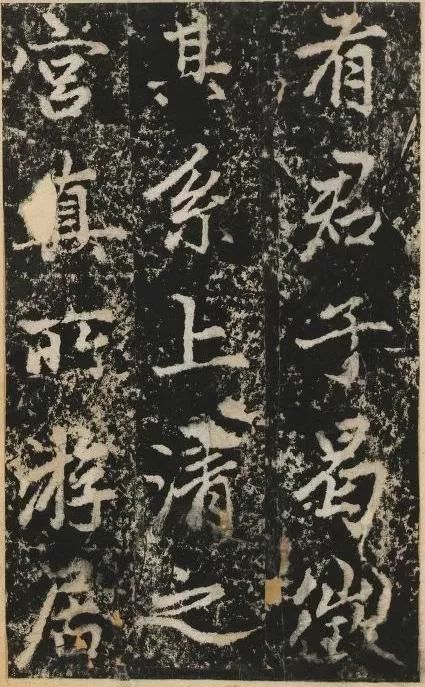 有君子曷徵
其系上清之
宫真所游居